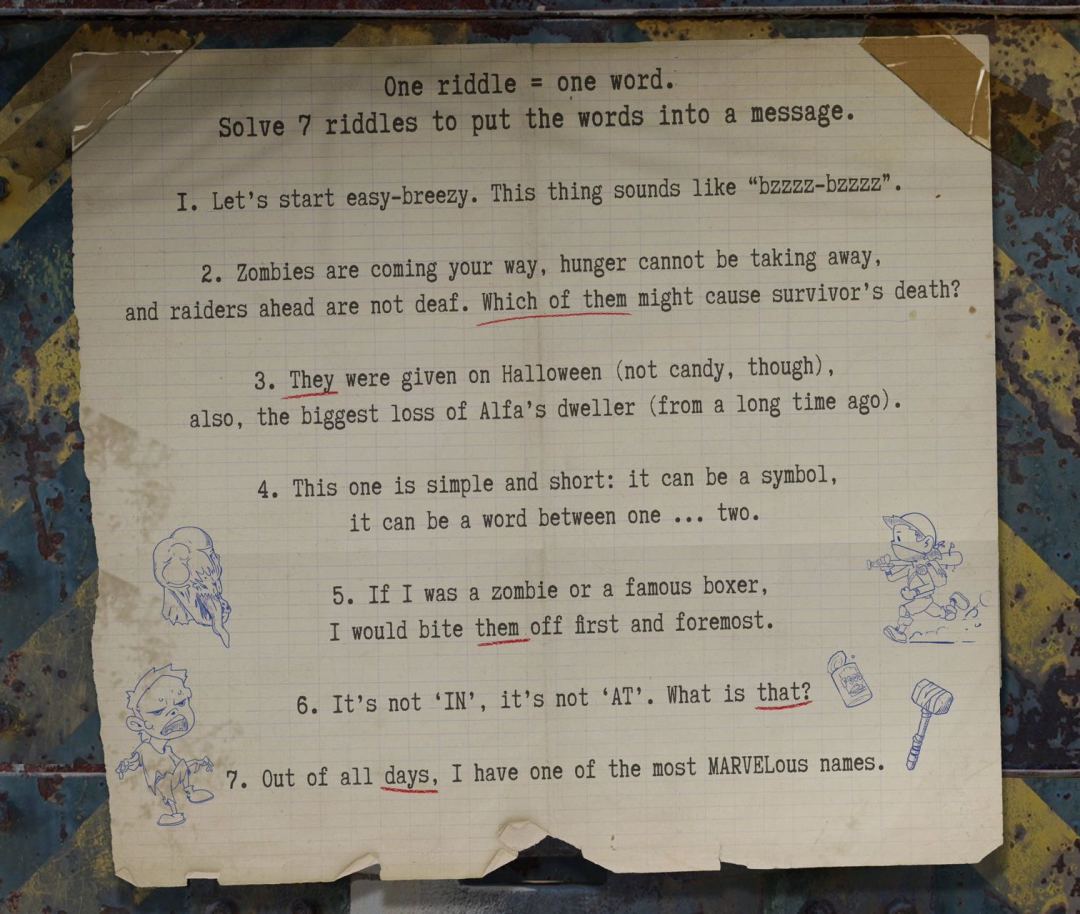 One riddle = one word.
Solve 7 riddles to put the words into a message.
I. Let's start easy-breezy. This thing sounds like “bzzzz-bzzzz”.
2. Zombies are coming your way, hunger cannot be taking away,
and raiders ahead are not deaf. Which of them might cause survivor's death?
3. They were given on Halloween (not candy, though),
also, the biggest loss of Alfa's dweller (from a long time ago).
4. This one is simple and short: it can be a symbol,
it can be a word between one ... two.
5. If I was a zombie or a famous boxer,
I would bite them off first and foremost.
6. It's not ‘IN’, it's not ‘AT’. What is that?
7. Out of all days, I have one of the most MARVELous names.